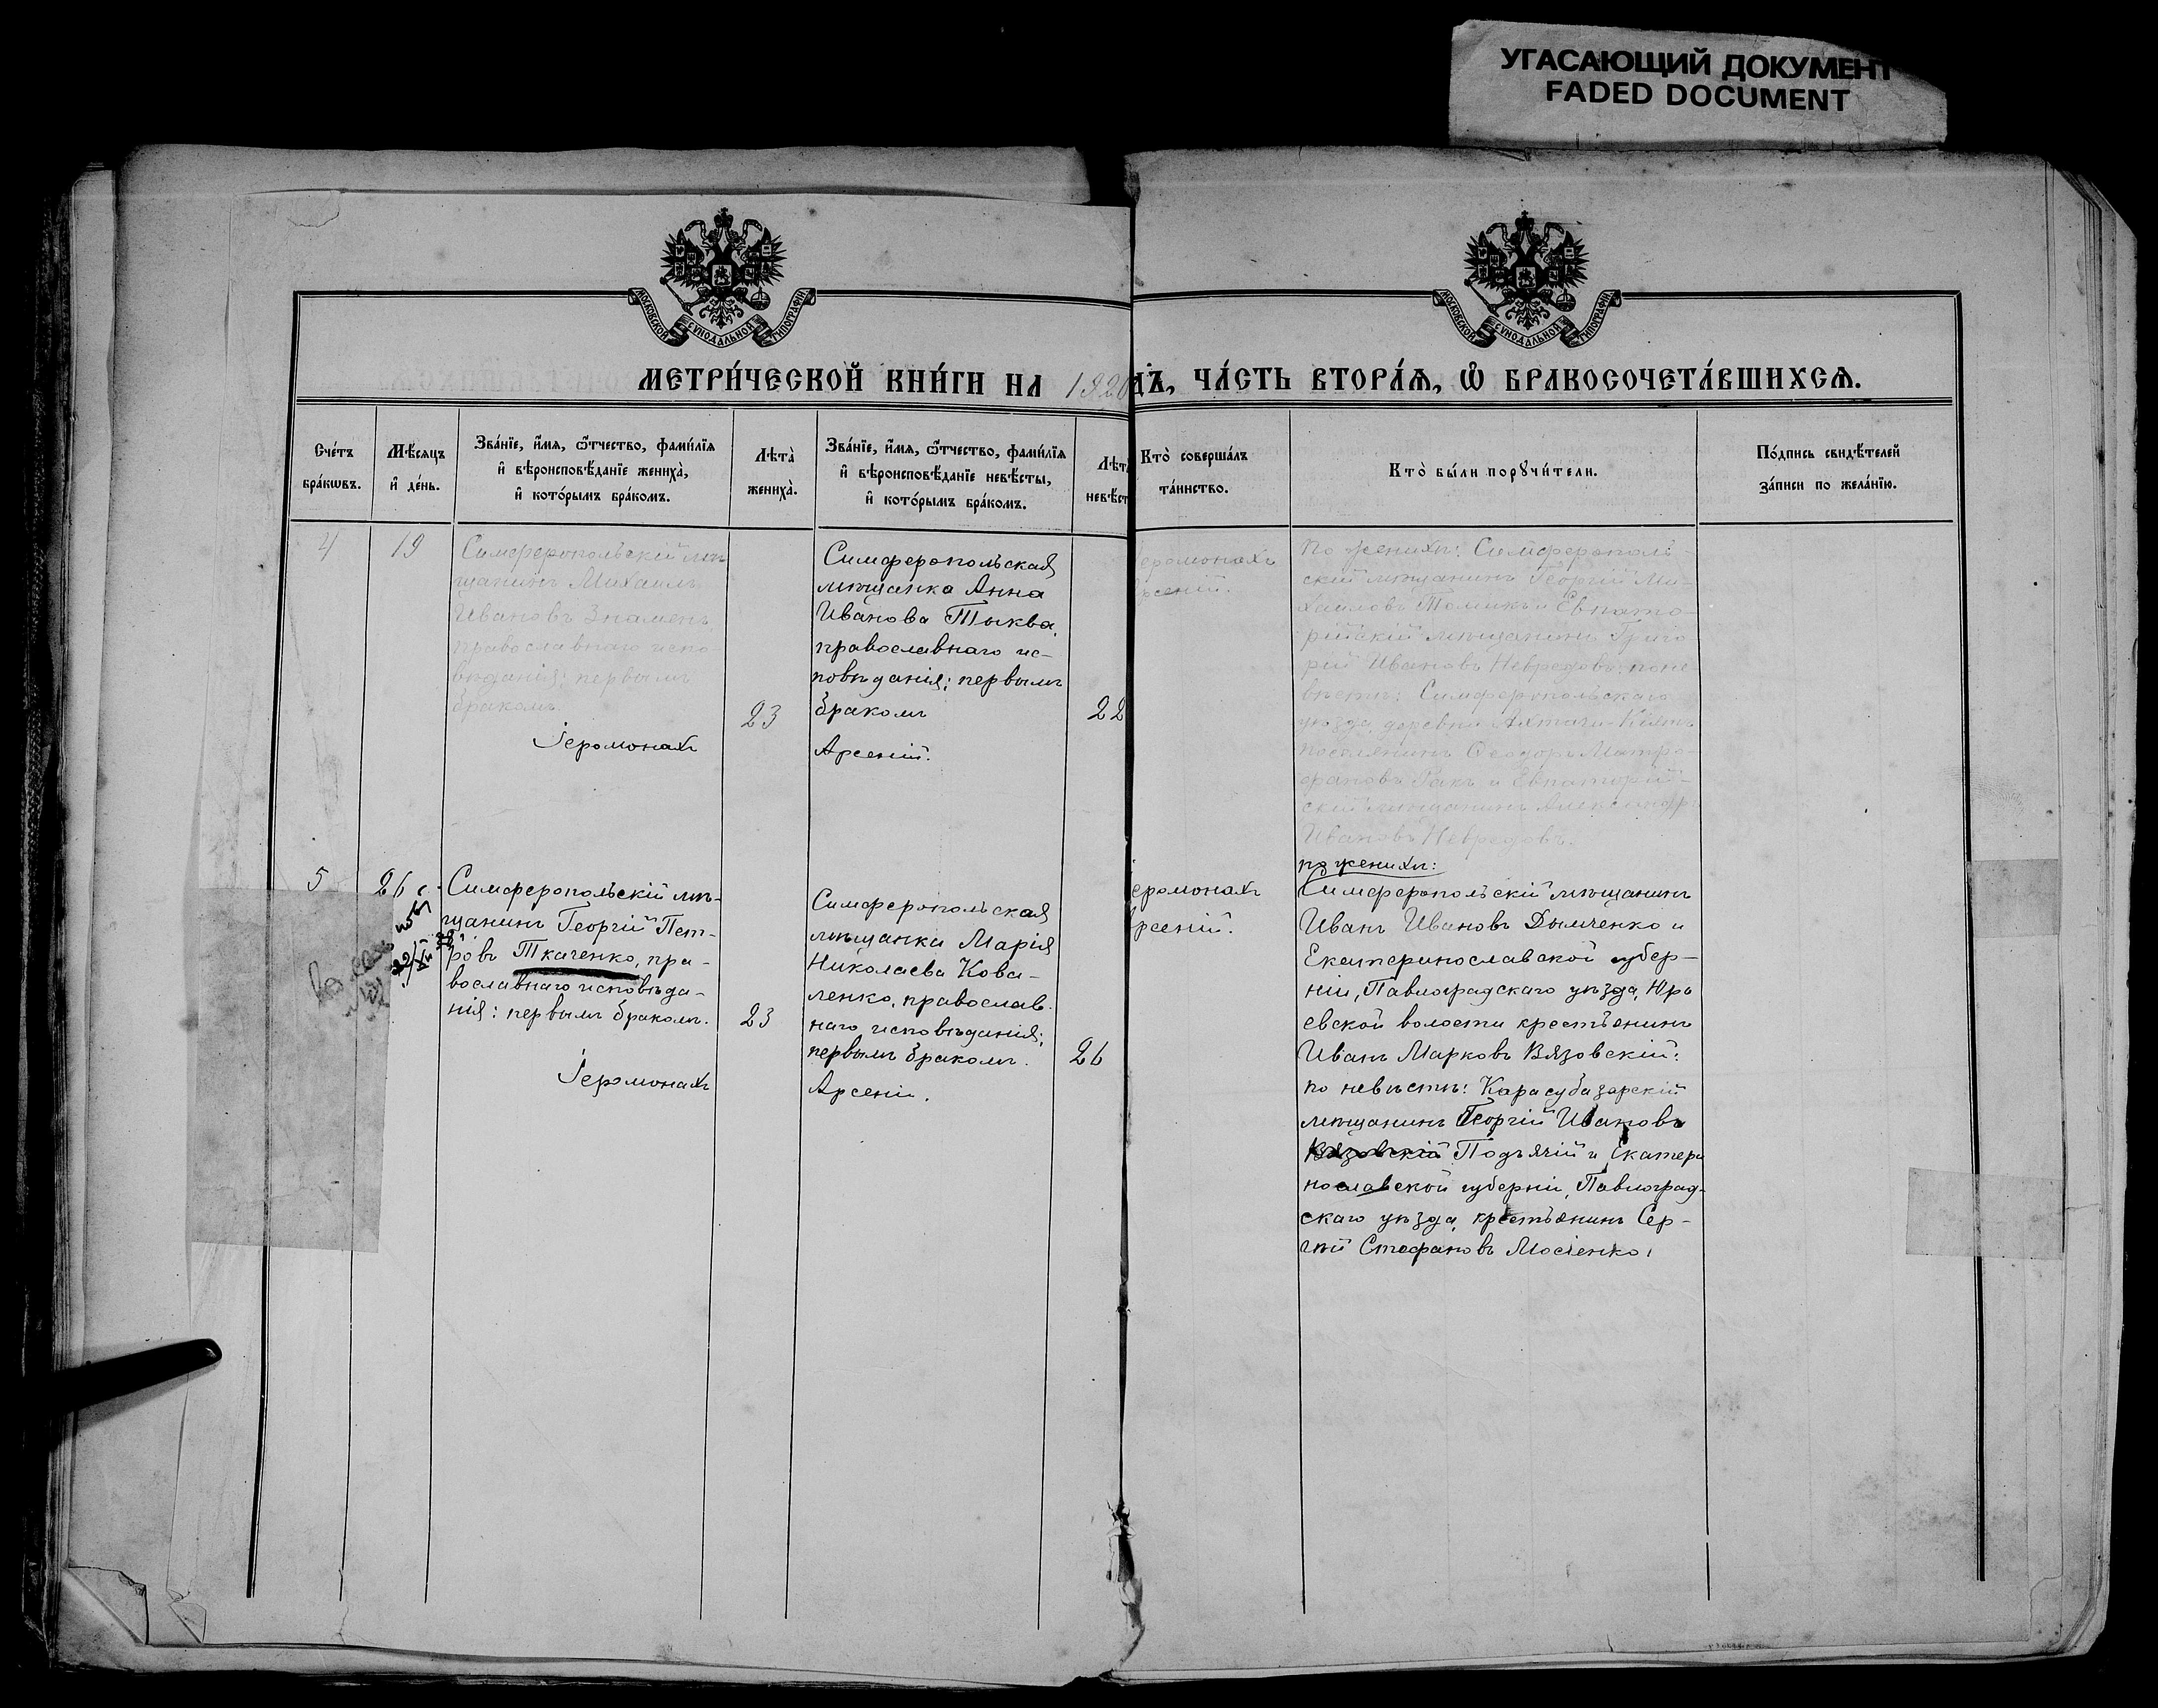 УГАСАЮЩИЙ ДОКУМЕНТ
FADED DOCUMENT
МОСКОВСКОЙ СѴНОДАЛЬНОЙ ТИПОГРАФІИ
МОСКОВСКОЙ СѴНОДАЛЬНОЙ ТИПОГРАФІИ
МЕТРИ́ЧЕСКОЙ КНИ́ГИ НА 1920 ДЪ, ЧА́СТЬ ВТОРА́Я, Ѽ БРАКОСОЧЕТА́ВШИХСЯ.
Сче́тъ
бра́кѡвъ.
Мѣ́сяцъ
и҆ де́нь.
Зва́нїе, и҆́мя, ѻ҆́тчество, фами́лїя
и҆ вѣроисповѣ́данїе жениха̀,
и҆ кото́рымъ бра́комъ.
Лѣта̀
жениха̀.
Зва́нїе, и҆́мя, ѻ҆́тчество, фами́лїя
и҆ вѣроисповѣ́данїе невѣ́сты,
и҆ кото́рымъ бра́комъ.
Лѣт
невѣ́ст
Кто̀ соверша́лъ
та́инство.
Кто̀ бы́ли порꙋчи́тели.
По́дпись свидѣ́телей
за́писи по жела́нїю.
4
19
Симферопольскій мѣ-
щанинъ Михаилъ
Ивановъ Знамень
православнаго испо-
вѣданія; первымъ
бракомъ.
23
Іеромонахъ
Симферопольская
мѣщанка Анна
Иванова Тыква,
православнаго ис-
повѣданія; первымъ
бракомъ
22
Арсеній.
еромонахъ
рсеній.
По женихѣ: Симферополь-
скій мѣщанинъ Георгій Ми-
хаиловъ Томикъ и Евпато-
рійскій мѣщанинъ Григо-
рій Ивановъ Невредовъ поне-
вѣстѣ: Симферопольскаго
уѣзда, деревни
поселянинъ Ѳеодоръ Митро-
фановъ Гакъ и Евпаторій-
скій мѣщанинъ Александръ
Ивановъ Невредовъ.
5
26
Симферопольскій мѣ-
щанинъ Георгій Пет-
ровъ Ткаченко, пра-
вославнаго исповѣда-
нія: первымъ бракомъ.
23
Іеромонахъ
Симферопольская
мѣщанка Марія
Николаева Кова-
ленко, православ-
наго исповѣданія;
первымъ бракомъ.
26
Арсеніи.
еромонахъ
рсеній.
по женихѣ:
Симферопольскій мѣщанинъ
Иванъ Ивановъ Дымченко и
Екатеринославской губер-
ніи, Павлоградскаго уѣзда, Юрь
евской волости крестьянинъ
Иванъ Марковъ Вязовскій:
по невѣстѣ: Карасубазарскій
мѣщанинъ Георгій Ивановъ
Вязовскій Подъячій и Екатери
нославской губерніи, Павлоград-
скаго уѣзда, крестьянинъ Сер-
гѣй Стефановъ Мосіенко,